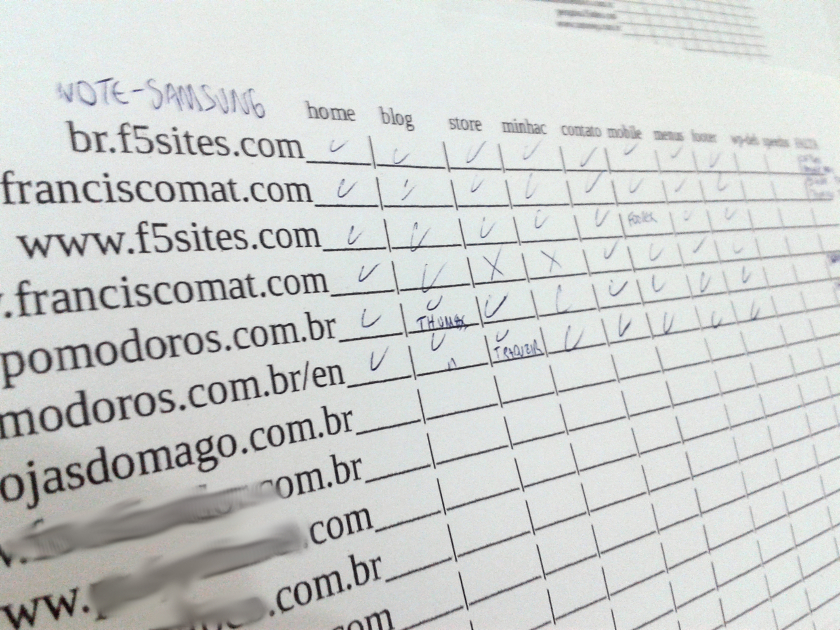 NOTE-SAMSUNG
home blog store minhac contato mobile menus footer
br.f5sites.com
franciscomat.com
www.f5sites.com
.franciscomat.com
pomodoros.com.br THUMBS
modoros.com.br/en
ojasdomago.com.br
om.br
.com
ww. .com.br
com